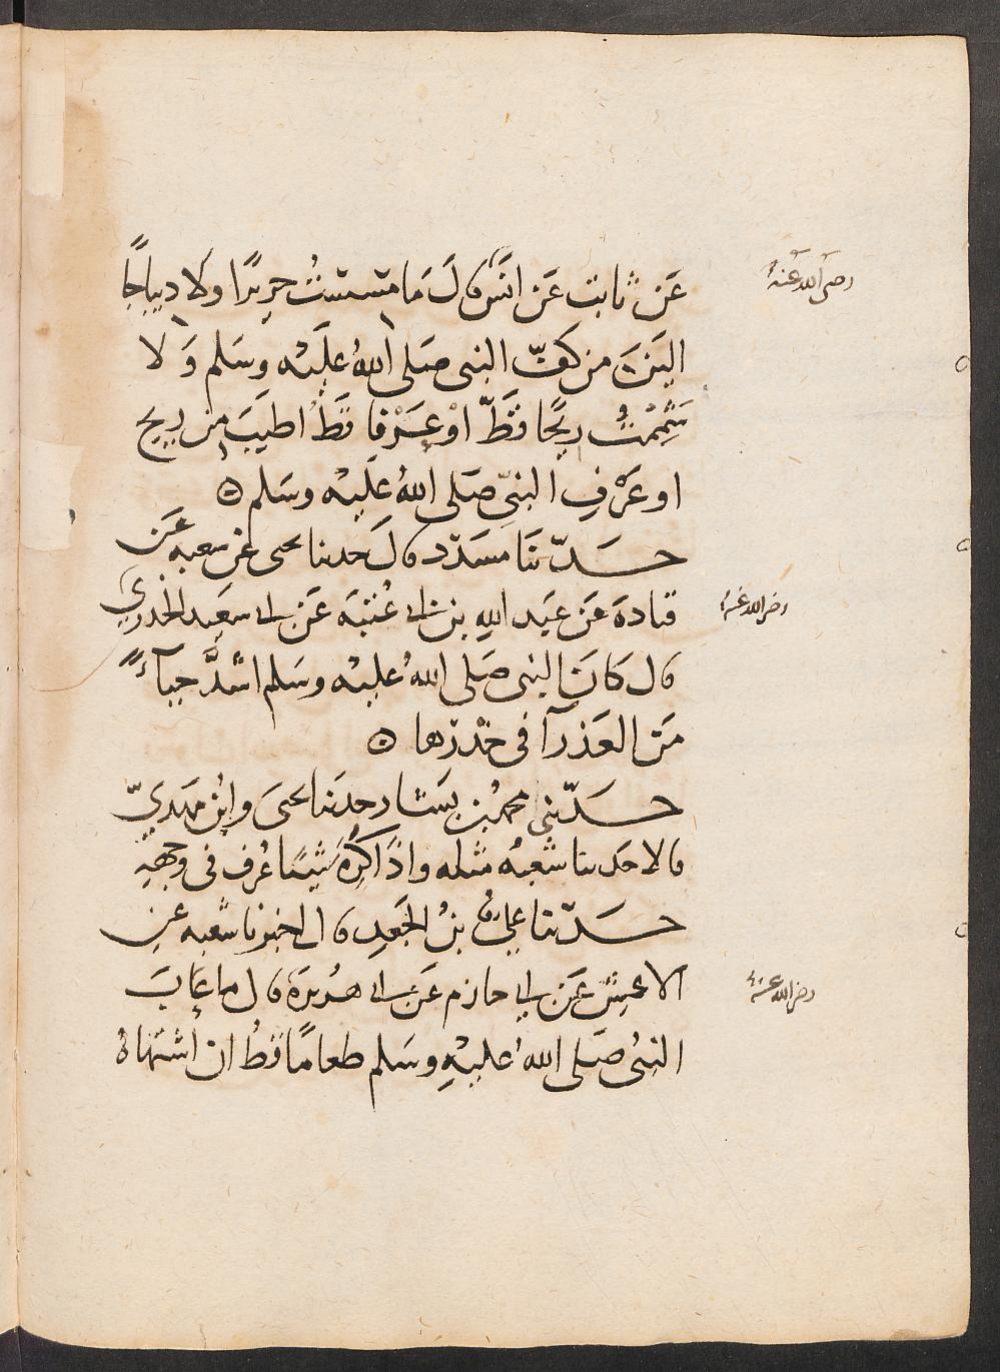 عَن ثابت عَن انَسٍ قالَ مَا مَسَسْتُ حريرًا ولا ديباجًا
رضى الله عنه
اليَنَ من كفّ النبى صَلى اللهُ عَلَيْه وسَلم وَلا
شَمِمْتُ ريحًا قطّ اوْ عَرْفا قطُ اطيَبَ من ريح
او عَرْفِ النبيِّ صَلى اللهُ عَلَيْه وسَلم
حَدّثنَا مسَدّد قالَ حدثنا يحيى عَن شعبه عَن
قتادةَ عَن عَبد اللهِ بن ابى عُتبَه عَن ابى سعَيد الخدري
رضى الله عنه
قال كانَ النبى صَلى اللهُ عليْه وسَلم اشدَّ حيآءً
مَن العَذرآ فى خدْرها
حَدّثني محمد بن بَشار حدثنا يحيَى وابْن مَهديّ
قالا حدثنا شعبهُ مثله واذا كَرِهَ شيئًا عُرف فى وجههِ
حَدّثنا عليُّ بنُ الجَعدِ قال اخبرنا شعبه عن
الاعمش عَن ابى حازم عَن ابى هُريرَة قال ما عَابَ
رضى الله عنه
النبيُ صَلى اللهُ عليْهِ وسَلم طعامًا قطُ ان اشتهاهُ